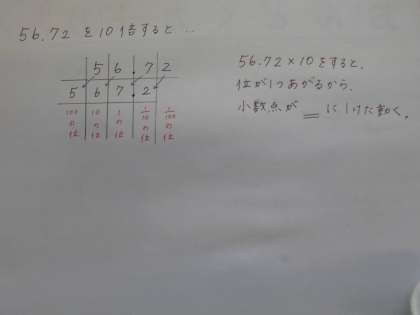 56.72 を10倍すると..
5 6 . 7 2
5 6 7 . 2
100の位 10の位 1の位 1/10の位 1/100の位
56.72×10をすると、
位が1つあがるから、
小数点が＿に1けた動く。